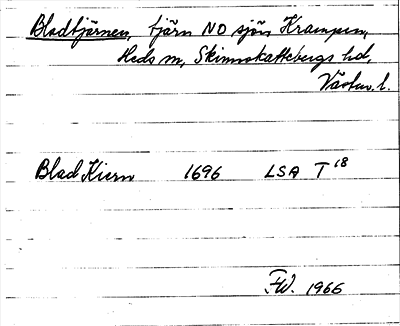 Bladtjärnen, tjärn NO sjön Krampen,
Heds sn, Skinnskattebergs hd,
Västm. l.
Blad Kiern 1696 LSA T 18
F.W. 1966